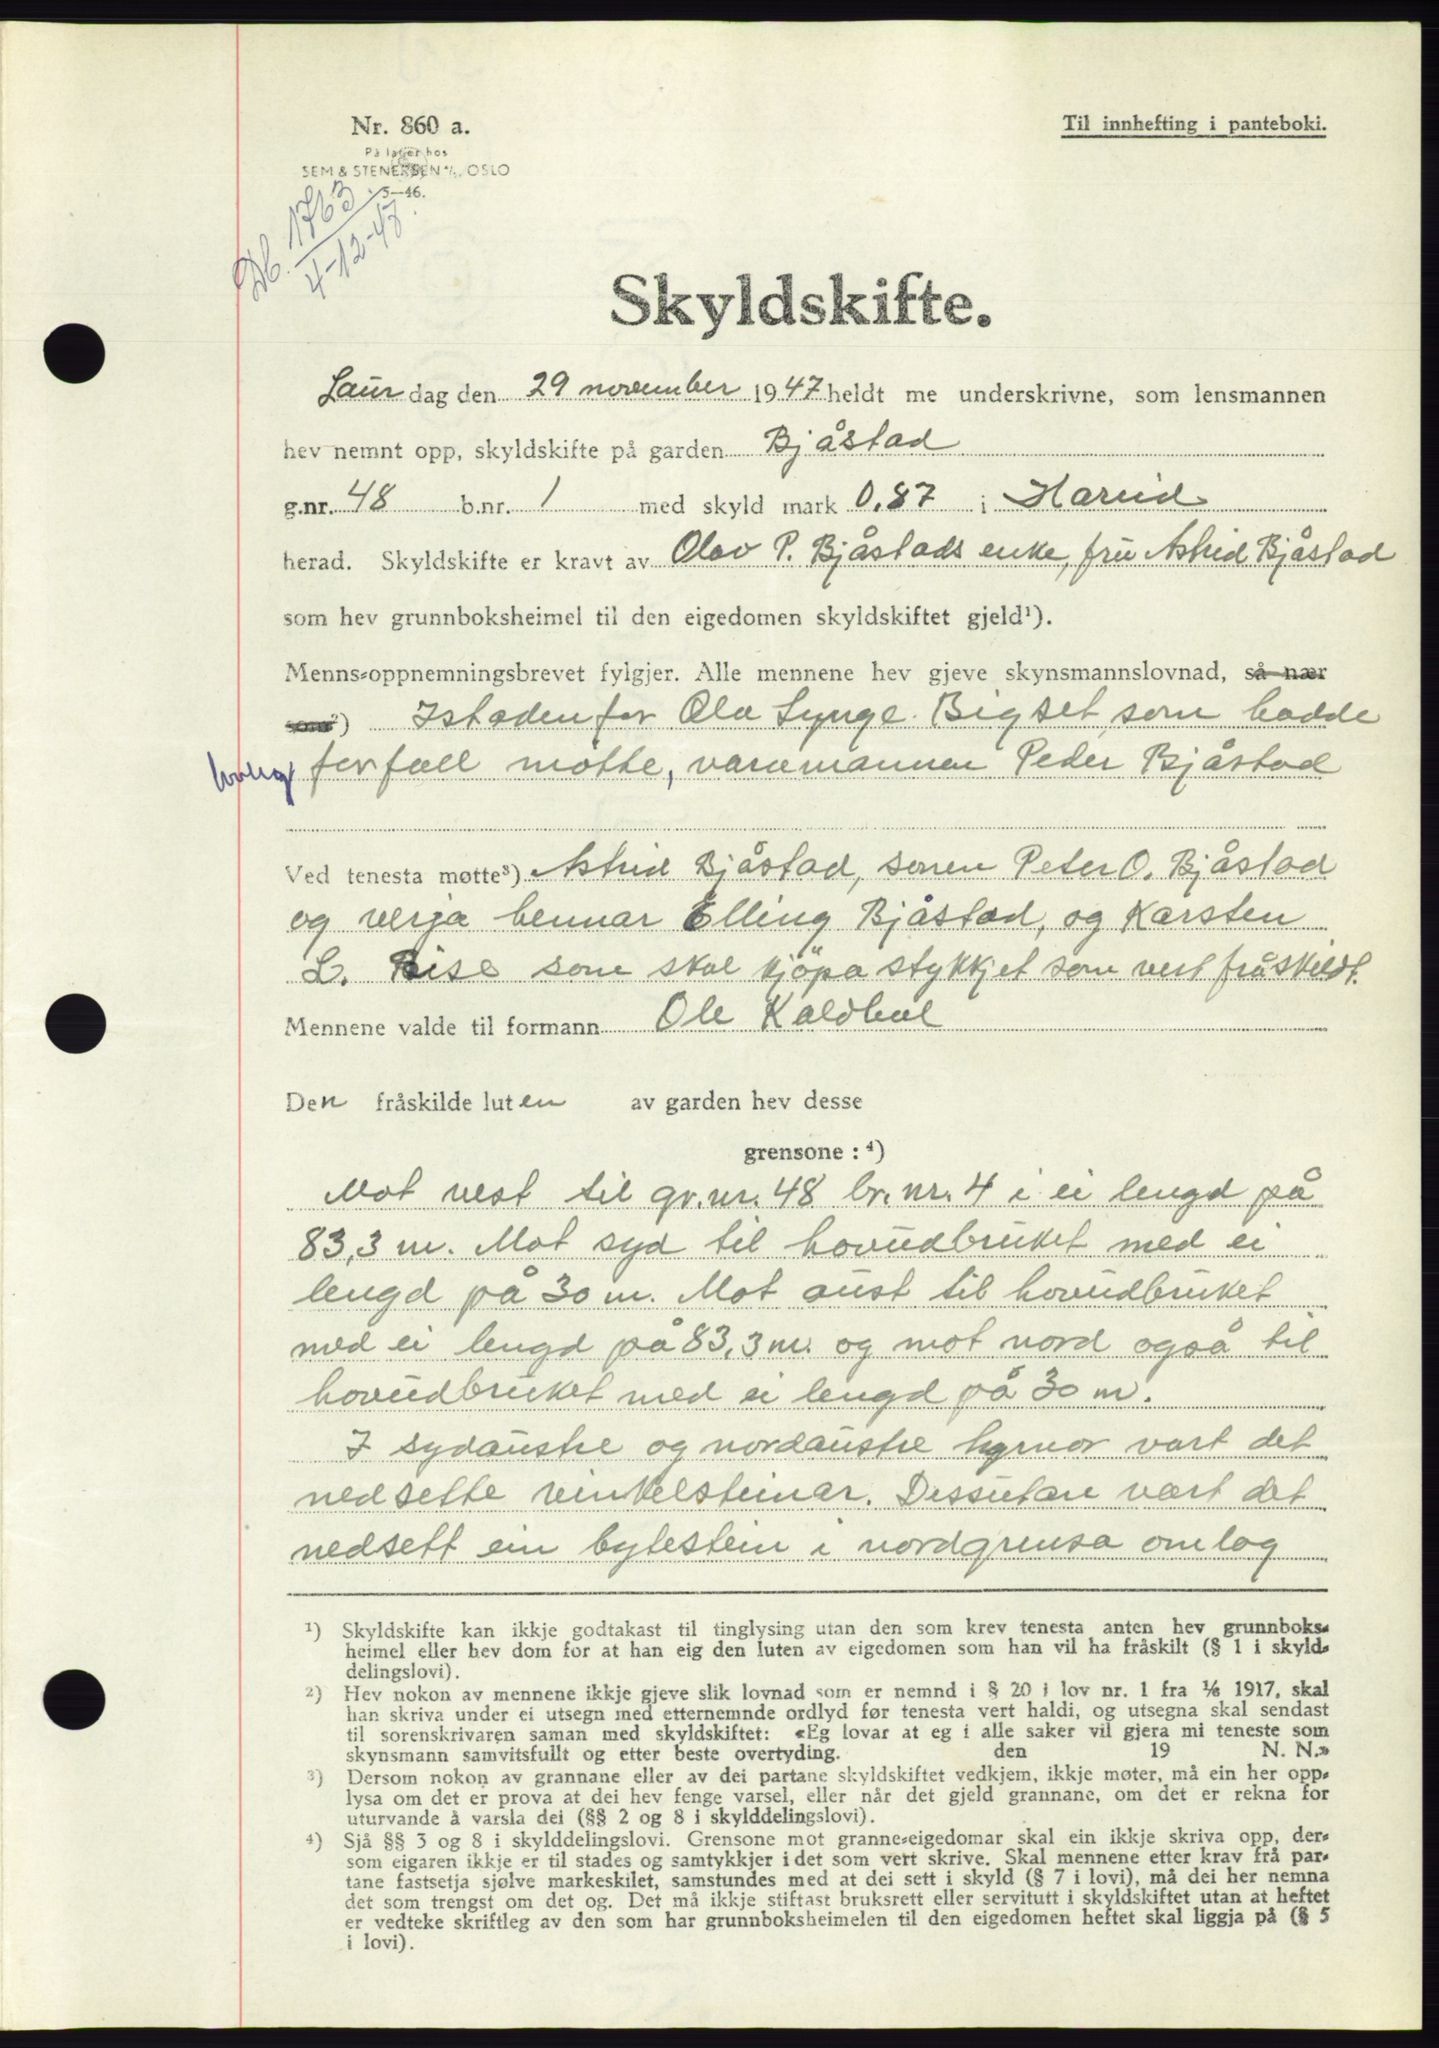 Nr. 860 a.
Til innhefting i panteboki.
På lager hos
SEM & STENERSEN A/S, OSLO
5—46.
Db. 1763
4-12-47.
Skyldskifte.
Laurdag den 29 november 1947 heldt me underskrivne, som lensmannen
hev nemnt opp, skyldskifte på garden Bjåstad
g.nr. 48 b.nr. 1 med skyld mark 0,87 i Hareid
herad. Skyldskifte er kravt av Olav P. Bjåstads enke, fru Astrid Bjåstad
som hev grunnboksheimel til den eigedomen skyldskiftet gjeld¹).
Menns-oppnemningsbrevet fylgjer. Alle mennene hev gjeve skynsmannslovnad, så nær
som²) Istaden for Ola Synge Bigset, som hadde
forfall møtte, varamannen Peder Bjåstad
Ved tenesta møtte³) Astrid Bjåstad, sonen Peter O. Bjåstad
og verja hennar Elling Bjåstad, og Karsten
L. Riise som skal kjöpa stykkjet som vert fråskildt.
Mennene valde til formann Ole Kaldhol
Den fråskilde luten av garden hev desse
grensone : ⁴)
Mot vest til gr.nr. 48 br.nr. 4 i ei lengd på
83,3 m. Mot syd til hovudbruket med ei
lengd på 30 m. Mot aust til hovudbruket
med ei lengd på 83,3 m. og mot nord også til
hovudbruket med ei lengd på 30 m.
I sydaustre og nordaustre hyrnor vart det
nedsette vinkelsteinar. Dessutan vart det
nedsett ein bytestein i nordgrensa omlag
¹) Skyldskifte kan ikkje godtakast til tinglysing utan den som krev tenesta anten hev grunnboks-
heimel eller hev dom for at han eig den luten av eigedomen som han vil ha fråskilt (§ 1 i skyld-
delingslovi).
²) Hev nokon av mennene ikkje gjeve slik lovnad som er nemnd i § 20 i lov nr. 1 fra 1/6 1917, skal
han skriva under ei utsegn med etternemnde ordlyd før tenesta vert haldi, og utsegna skal sendast
til sorenskrivaren saman med skyldskiftet: «Eg lovar at eg i alle saker vil gjera mi teneste som
skynsmann samvitsfullt og etter beste overtyding. den 19 N. N.»
³) Dersom nokon av grannane eller av dei partane skyldskiftet vedkjem, ikkje møter, må ein her opp-
lysa om det er prova at dei hev fenge varsel, eller når det gjeld grannane, om det er rekna for
uturvande å varsla dei (§§ 2 og 8 i skylddelingslovi).
⁴) Sjå §§ 3 og 8 i skylddelingslovi. Grensone mot granne-eigedomar skal ein ikkje skriva opp, der-
som eigaren ikkje er til stades og samtykkjer i det som vert skrive. Skal mennene etter krav frå par-
tane fastsetja sjølve markeskilet, samstundes med at dei sett i skyld (§ 7 i lovi), må dei her nemna
det som trengst om det og. Det må ikkje stiftast bruksrett eller servitutt i skyldskiftet utan at heftet
er vedteke skriftleg av den som har grunnboksheimelen til den eigedomen heftet skal liggja på (§ 5
i lovi).